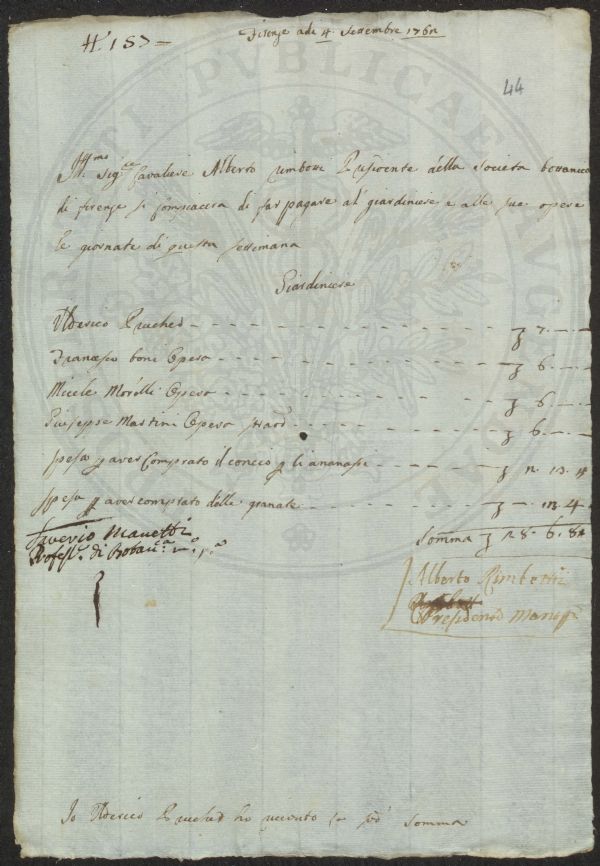 N.° 157 –
Firenze adi 4. Settembre 1762
44
Ill.mo Sig.re Cavaliere Alberto Rimbotti Presidente della Società bottanica
di firenze si compiacera di far pagare al giardiniere e alle sue opere
le giornate di questa settimana
Giardiniere
Ulderico Pruched 7
Francesco boni Opera 6
Micele Morelli Opera 6
Giuseppe Martini Opera straord 6
spesa p aver Comprato il concio p gli ananassi 13. 4
spesa p aver comprato delle granate 13. 4
Saverio Manetti
Profess.e di Botan.ca
Somma 28. 6. 8
Alberto Rimbotti
Presidente
Io Ulderico Pruched ho ricevuto la sud somma
PVBLICAE